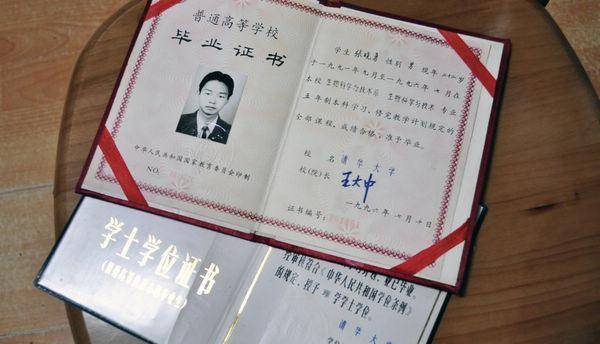 普通高等学校
毕业证书
中华人民共和国国家教育委员会印制
NO.
学生 张晓勇 性别 男 现年 二十三岁
于一九九一年九月至一九九六年七月在
本校 生物科学与技术系 生物科学与技术 专业
五年制本科学习，修完教学计划规定的
全部课程，成绩合格，准予毕业。
校名 清华大学
校(院)长 王大中
一九九六年七月十日
证书编号:
学士学位证书
业已毕业。
经审核符合《中华人民共和国学位条例》
的规定，授予 理 学学士学位。
清华大学